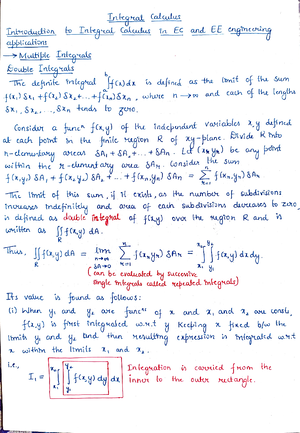 Integral Calculus
Introduction to Integral Calculus in EC and EE engineering
applications
→ Multiple Integrals
Double Integrals
The definite Integral ∫ₐᵇ f(x)dx is defined as the limit of the sum
f(x₁)δx₁+f(x₂)δx₂+...+f(xₙ)δxₙ, where n→∞ and each of the lengths
δx₁, δx₂, ..., δxₙ tends to zero.
Consider a funcⁿ f(x,y) of the independent variables x,y defined
at each point in the finite region R of xy-plane. Divide R into
n-elementary areas δA₁+δA₂+...+δAₙ. Let (xᵣ,yᵣ) be any point
within the r-elementary area δAᵣ. Consider the sum
f(x₁,y₁)δA₁+f(x₂,y₂)δA₂+...+f(xₙ,yₙ)δAₙ = Σ f(xᵣ,yᵣ)δAᵣ
The limit of this sum, if it exists, as the number of subdivisions
increases indefinitely and area of each subdivisions decreases to zero,
is defined as double integral of f(x,y) over the region R and is
written as ∬ f(x,y)dA.
Thus, ∬ f(x,y)dA = lim n→∞ δA→0 Σ f(xᵣ,yᵣ)δAᵣ = ∫ₓ₁ˣ² ∫ y₁ y₂ f(x,y)dxdy.
(can be evaluated by successive
single integrals called repeated integrals)
Its value is found as follows:
(i) When y₁ and y₂ are funcⁿ of x and x₁ and x₂ are const,
f(x,y) is first integrated w.r.t y keeping x fixed b/w the
limits y₁ and y₂ and then resulting expression is integrated w.r.t
x within the limits x₁ and x₂.
i.e., I₁ = ∫ₓ₁ˣ² ∫ y₁ y₂ f(x,y)dy dx Integration is carried from the
inner to the outer rectangle.